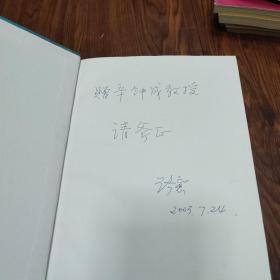 赠辛钟成教授
请斧正
2003.7.24.